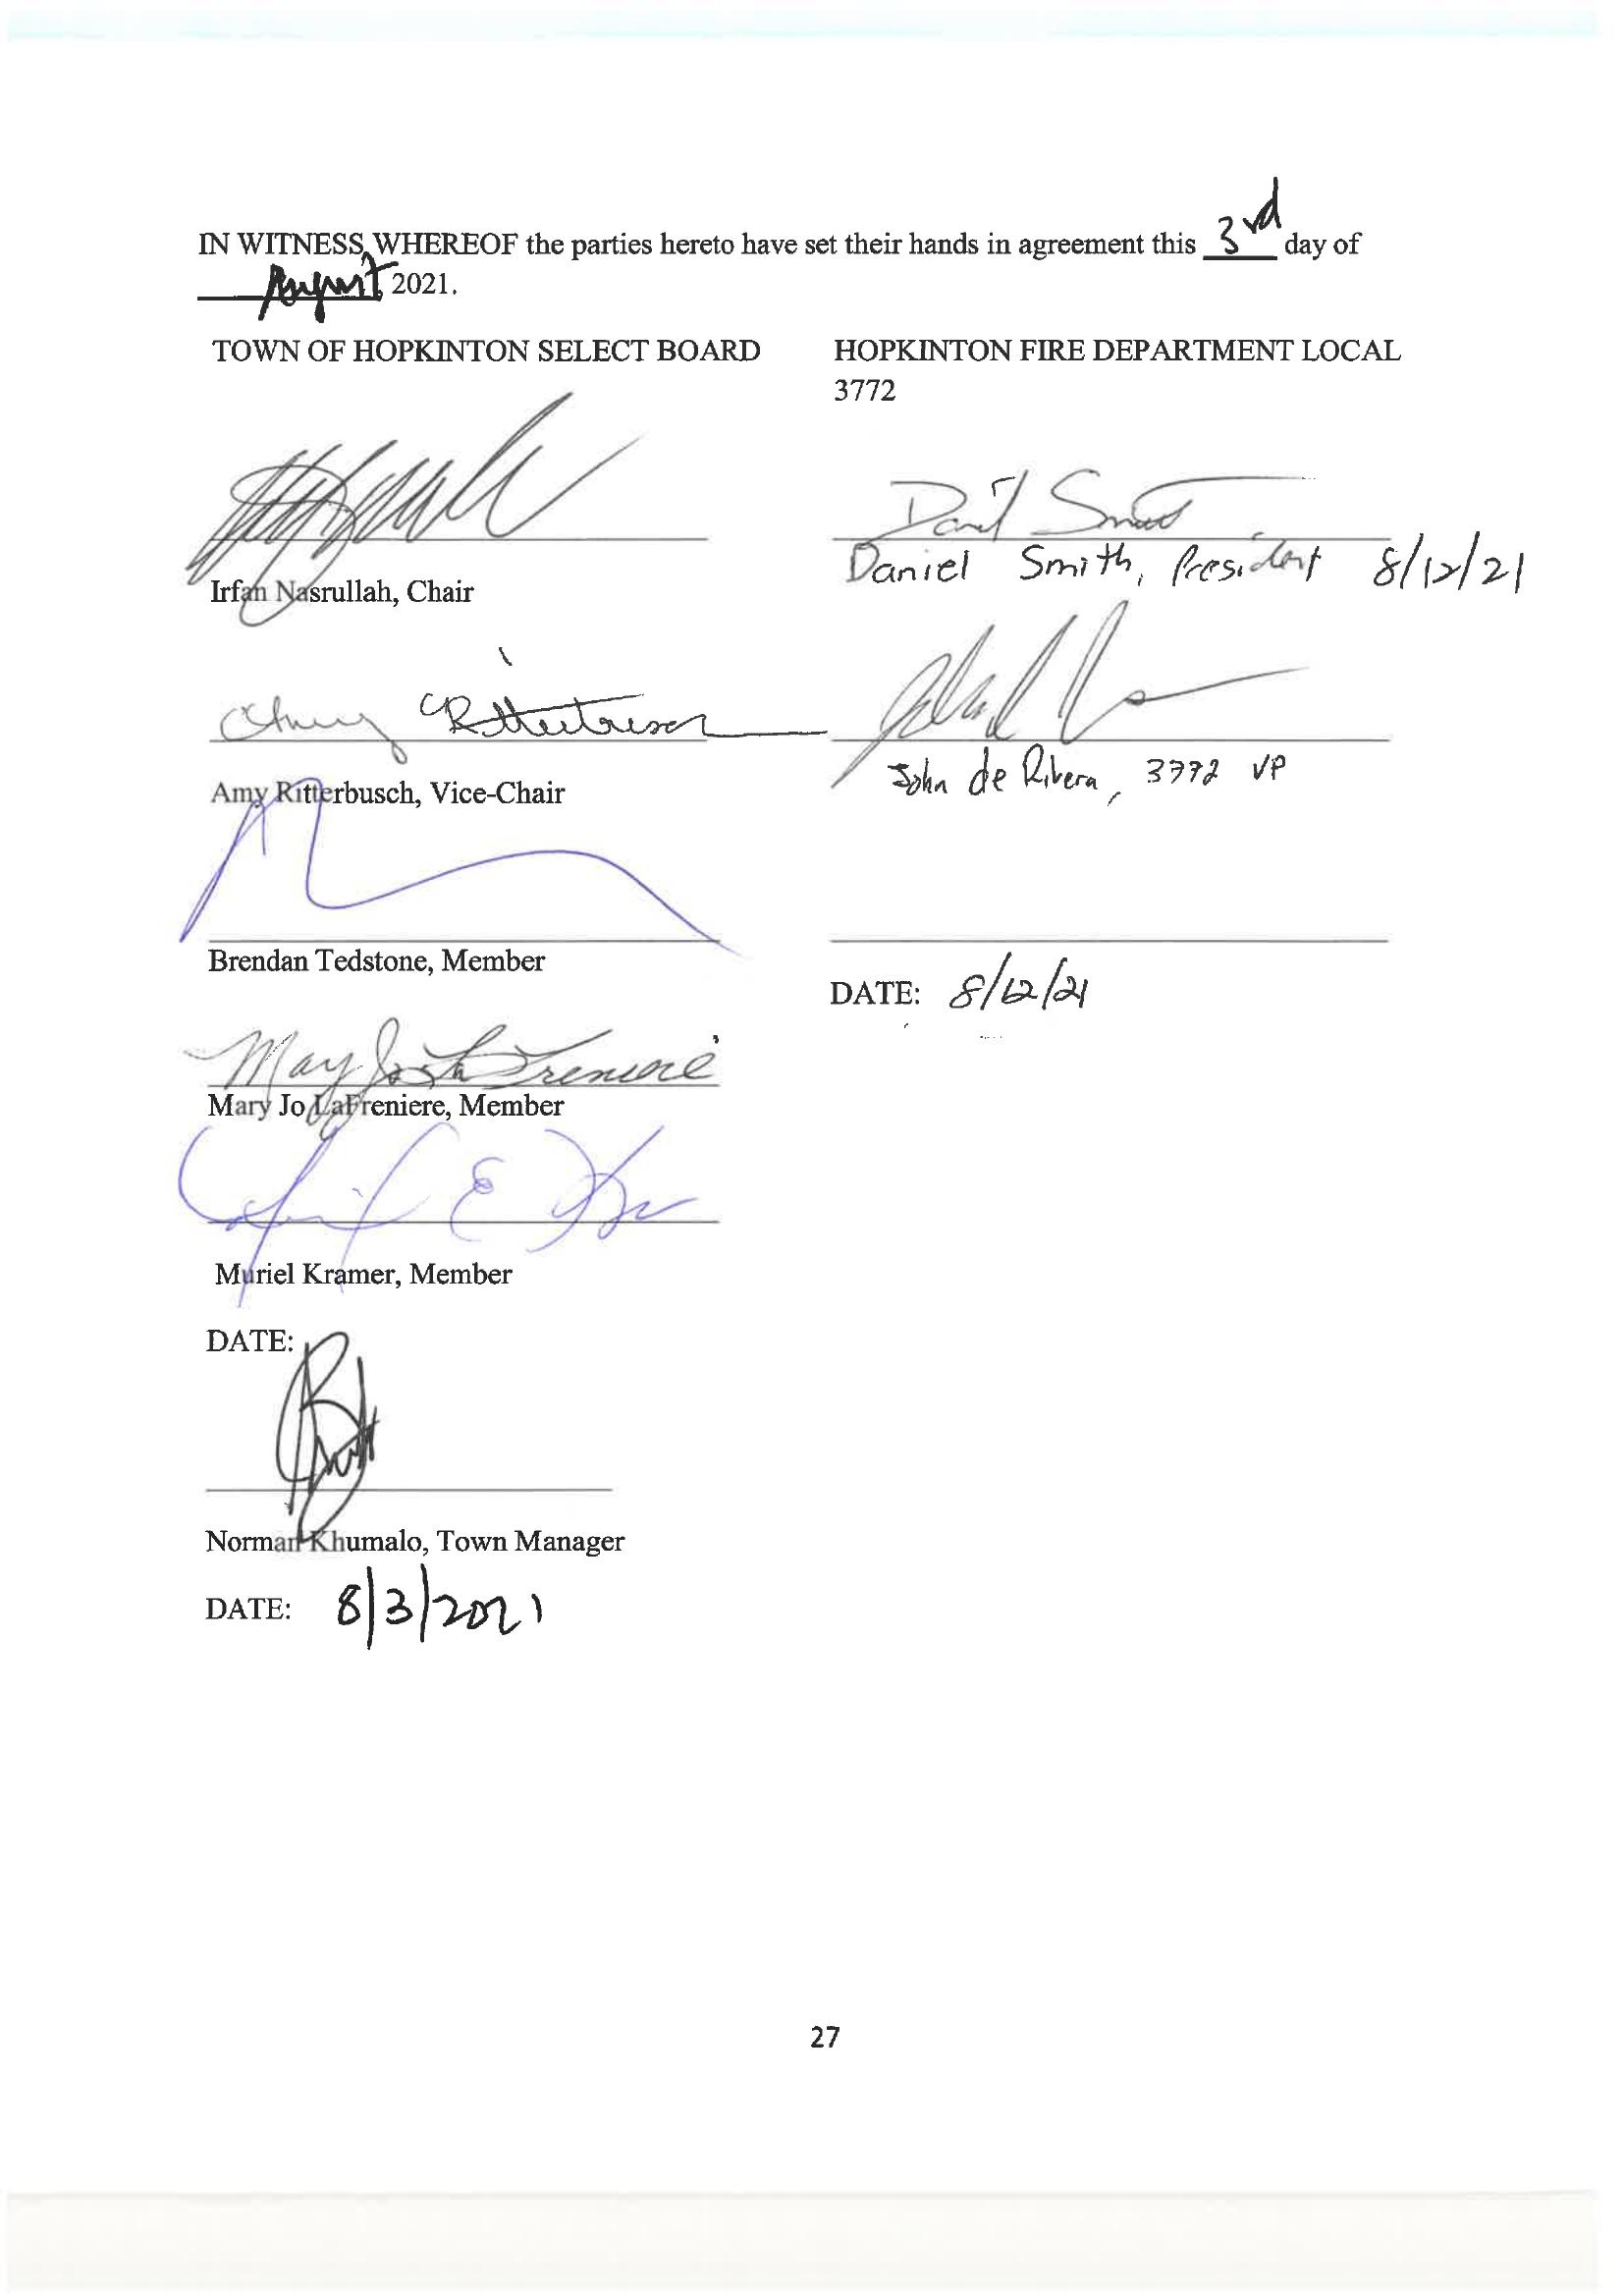 IN WITNESS WHEREOF the parties hereto have set their hands in agreement this 3rd day of
August 2021.
TOWN OF HOPKINTON SELECT BOARD
Irfan Nasrullah, Chair
Amy Ritterbusch
Amy Ritterbusch, Vice-Chair
Brendan Tedstone, Member
Mary Jo LaFreniere
Mary Jo LaFreniere, Member
Muriel Kramer, Member
DATE:
Norman Khumalo, Town Manager
DATE: 8/3/2021
HOPKINTON FIRE DEPARTMENT LOCAL
3772
Daniel Smith, President 8/12/21
John de Rivera, 3772 VP
DATE: 8/12/21
27